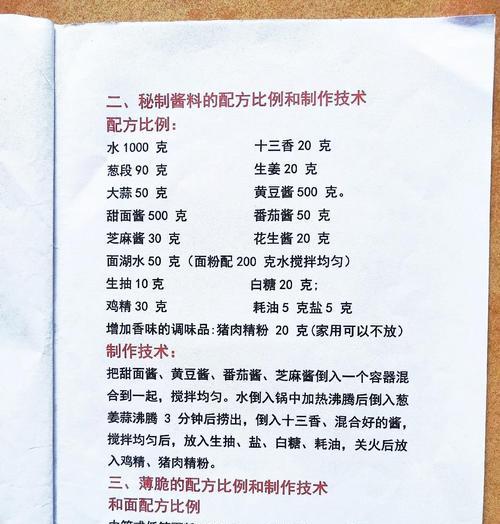 二、秘制酱料的配方比例和制作技术
配方比例:
水1000 克 十三香20 克
葱段90 克 生姜20 克
大蒜50 克 黄豆酱500 克。
甜面酱500 克 番茄酱50 克
芝麻酱30 克 花生酱20 克
面湖水50 克（面粉配200 克水搅拌均匀）
生抽10克 白糖20 克;
鸡精30 克 耗油5 克盐5 克
增加香味的调味品:猪肉精粉 20 克(家用可以不放)
制作技术:
把甜面酱、黄豆酱、番茄酱、芝麻酱倒入一个容器混
合到一起，搅拌均匀。水倒入锅中加热沸腾后倒入葱
姜蒜沸腾 3 分钟后捞出，倒入十三香、混合好的酱，
搅拌均匀后，放入生抽、盐、白糖、耗油，关火后放
入鸡精、猪肉精粉。
三、薄脆的配方比例和制作技术
和面配方比例